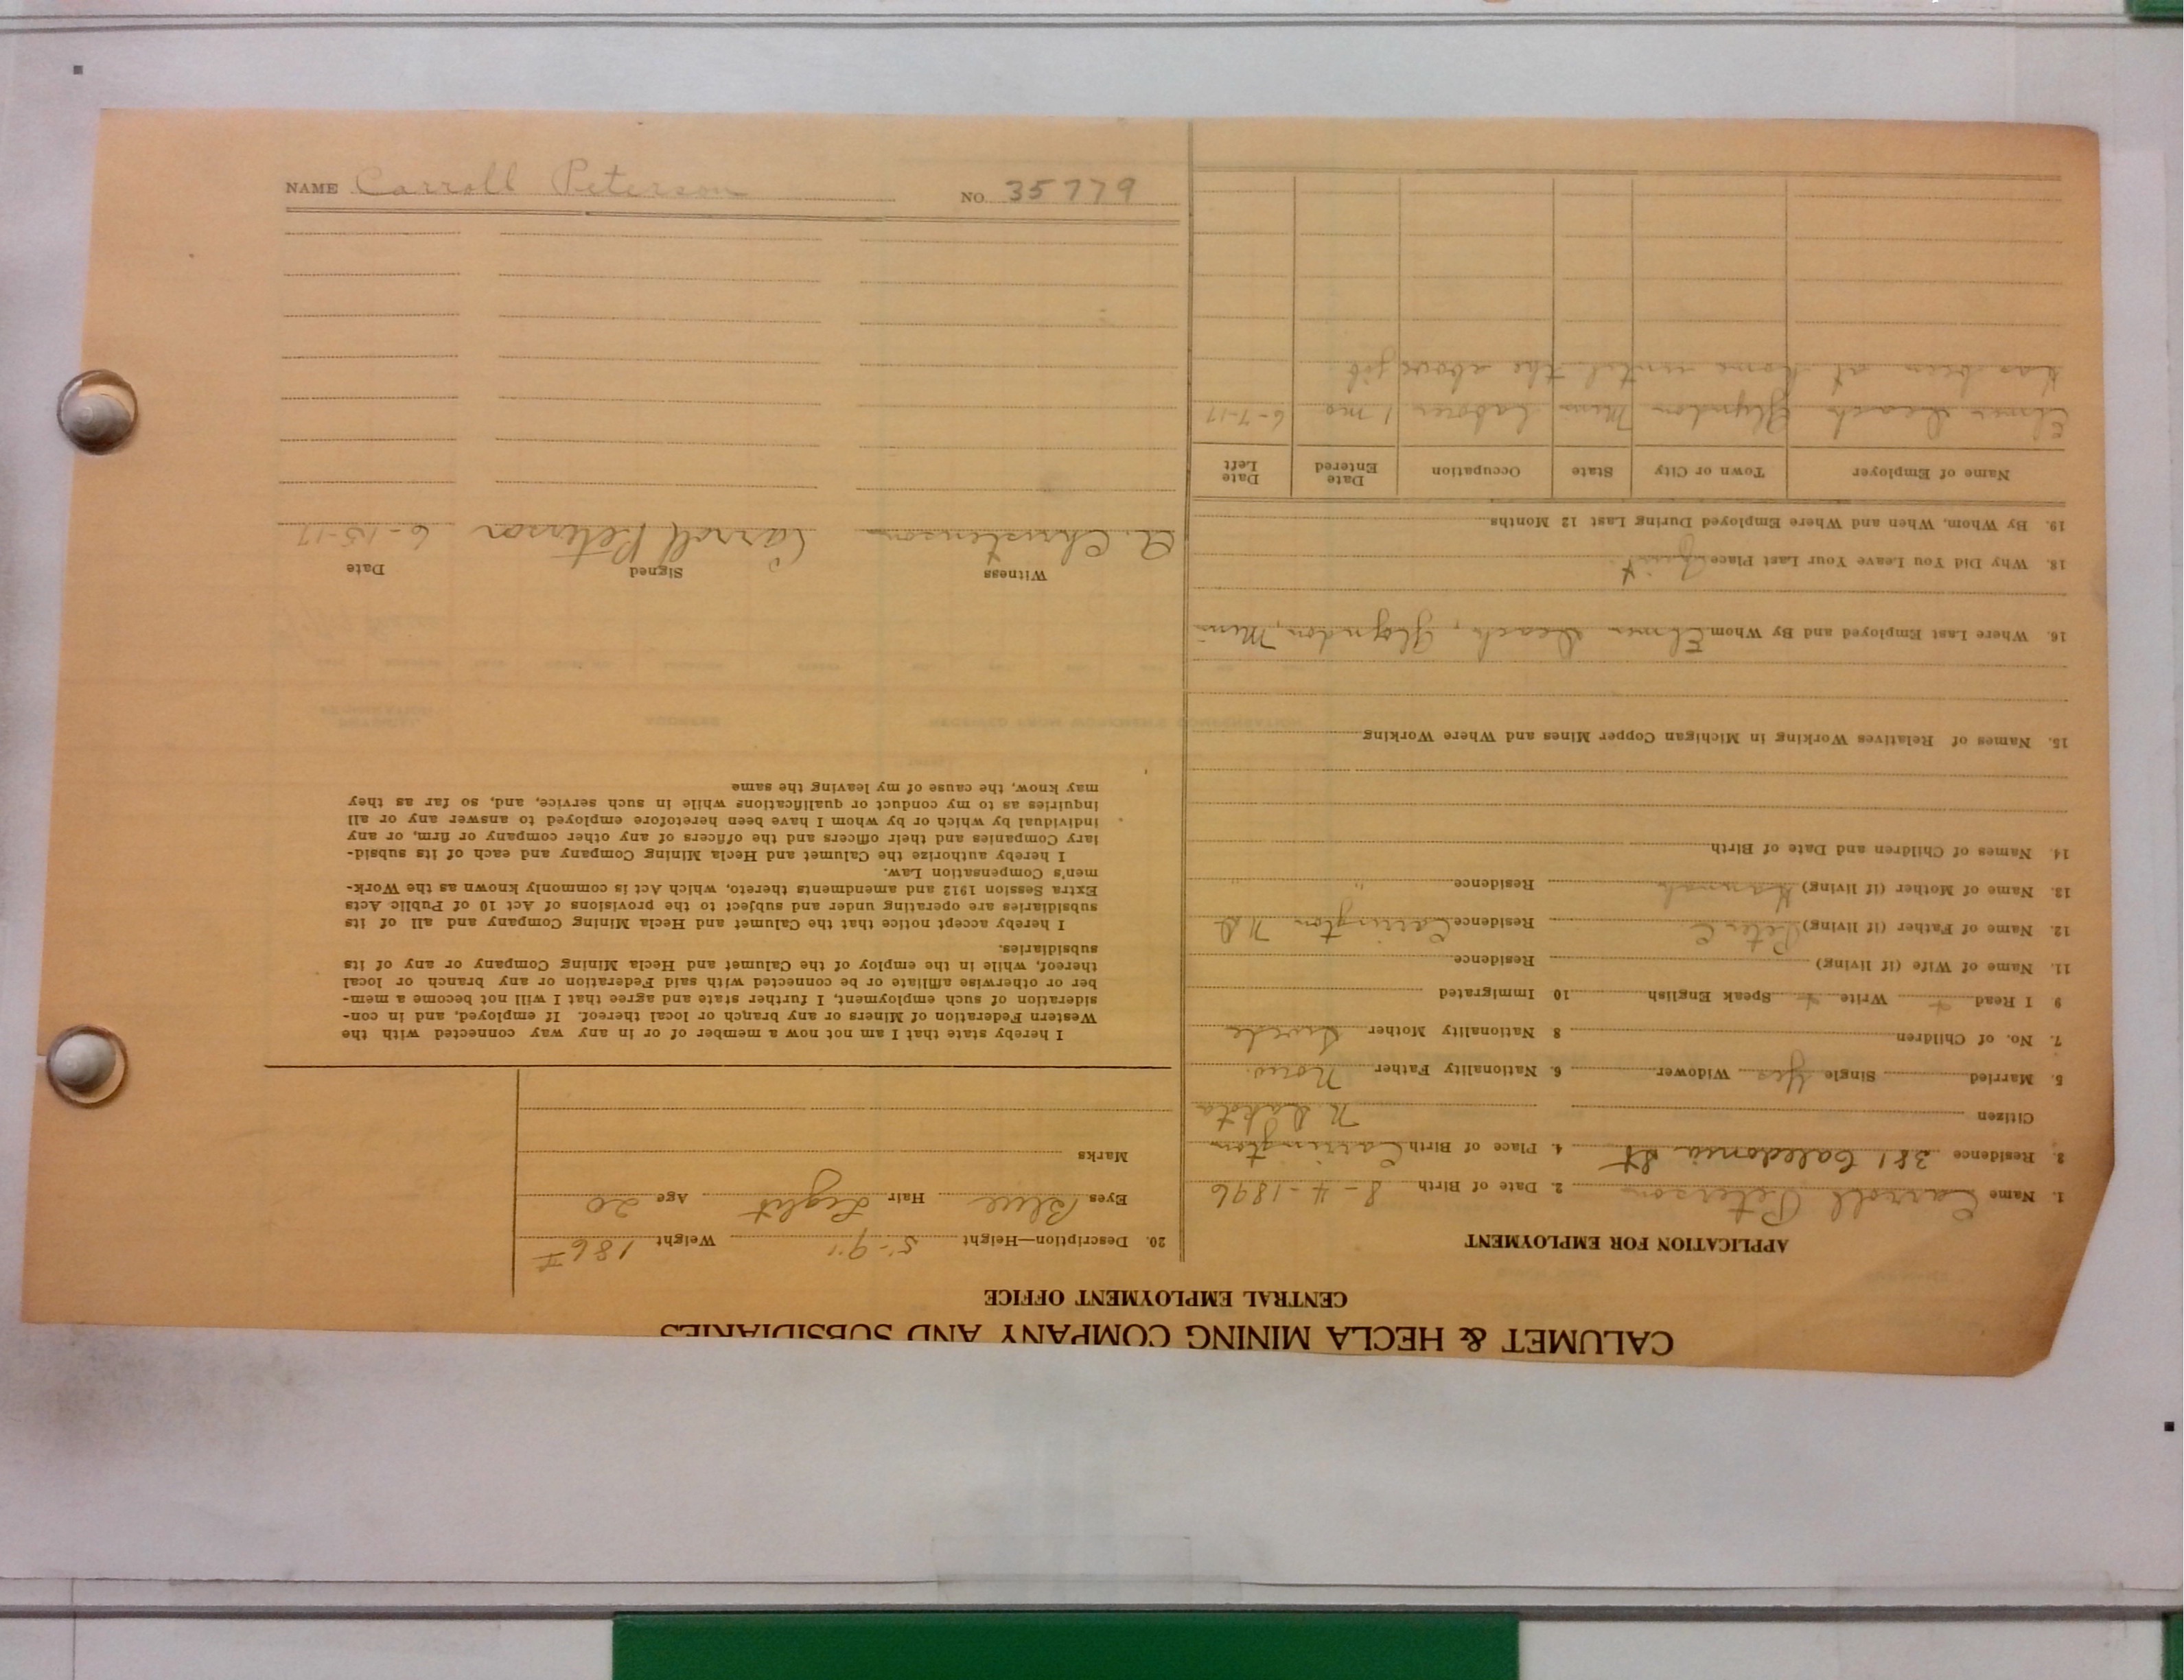 CALUMET & HECLA MINING COMPANY AND SUBSIDIARIES
CENTRAL EMPLOYMENT OFFICE
APPLICATION FOR EMPLOYMENT
1. Name Carroll Peterson 2. Date of Birth 8-4-1896
3. Residence 381 Caledonia St 4. Place of Birth Carrington
Citizen N Dakota
5. Married Single Yes Widower 6. Nationality Father Norw.
7. No. of Children 8 Nationality Mother Swede
9 I Read Write Speak English 10 Immigrated
11. Name of Wife (if living) Residence
12. Name of Father (if living) Peter C Residence Carrington N D
13. Name of Mother (if living) Hannah Residence " "
14. Names of Children and Date of Birth
15. Names of Relatives Working in Michigan Copper Mines and Where Working
16. Where Last Employed and By Whom Elmer Leach, Glyndon, Minn
18. Why Did You Leave Your Last Place Quit
19. By Whom, When and Where Employed During Last 12 Months
Name of Employer Town or City State Occupation Date Entered Date Left
Elmer Leach Glyndon Minn Laborer 1 mo 6-7-17
Has been at home until the above job
20. Description—Height 5'-9" Weight 186
Eyes Blue Hair Light Age 20
Marks
I hereby state that I am not now a member of or in any way connected with the
Western Federation of Miners or any branch or local thereof. If employed, and in con-
sideration of such employment, I further state and agree that I will not become a mem-
ber or otherwise affiliate or be connected with said Federation or any branch or local
thereof, while in the employ of the Calumet and Hecla Mining Company or any of its
subsidiaries.
I hereby accept notice that the Calumet and Hecla Mining Company and all of its
subsidiaries are operating under and subject to the provisions of Act 10 of Public Acts
Extra Session 1912 and amendments thereto, which Act is commonly known as the Work-
men's Compensation Law.
I hereby authorize the Calumet and Hecla Mining Company and each of its subsid-
iary Companies and their officers and the officers of any other company or firm, or any
individual by which or by whom I have been heretofore employed to answer any or all
inquiries as to my conduct or qualifications while in such service, and, so far as they
may know, the cause of my leaving the same
Witness Signed Date
A. Christenson Carroll Peterson 6-15-17
NAME Carroll Peterson NO. 35779